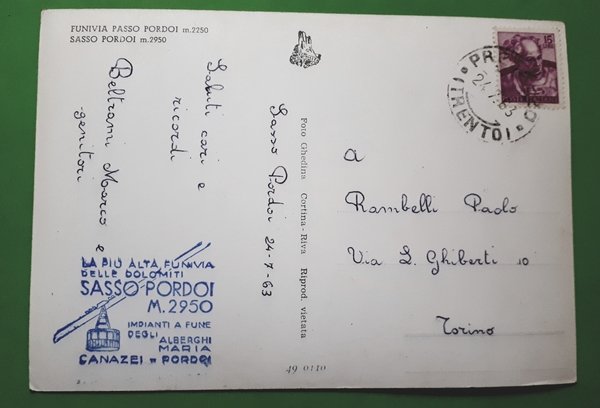 FUNIVIA PASSO PORDOI m.2250
SASSO PORDOI m.2950
Sasso Pordoi 24-7-63
Saluti cari e
ricordi
Beltrami Marco e
genitori
LA PIÙ ALTA FUNIVIA
DELLE DOLOMITI
SASSO PORDOI
M.2950
IMPIANTI A FUNE
DEGLI ALBERGHI
MARIA
CANAZEI - PORDOI
Foto Ghedina Cortina-Riva Riprod. vietata
49 0110
15
24.7.63
(TRENTO)
A
Rambelli Paolo
Via L. Ghiberti 10
Torino